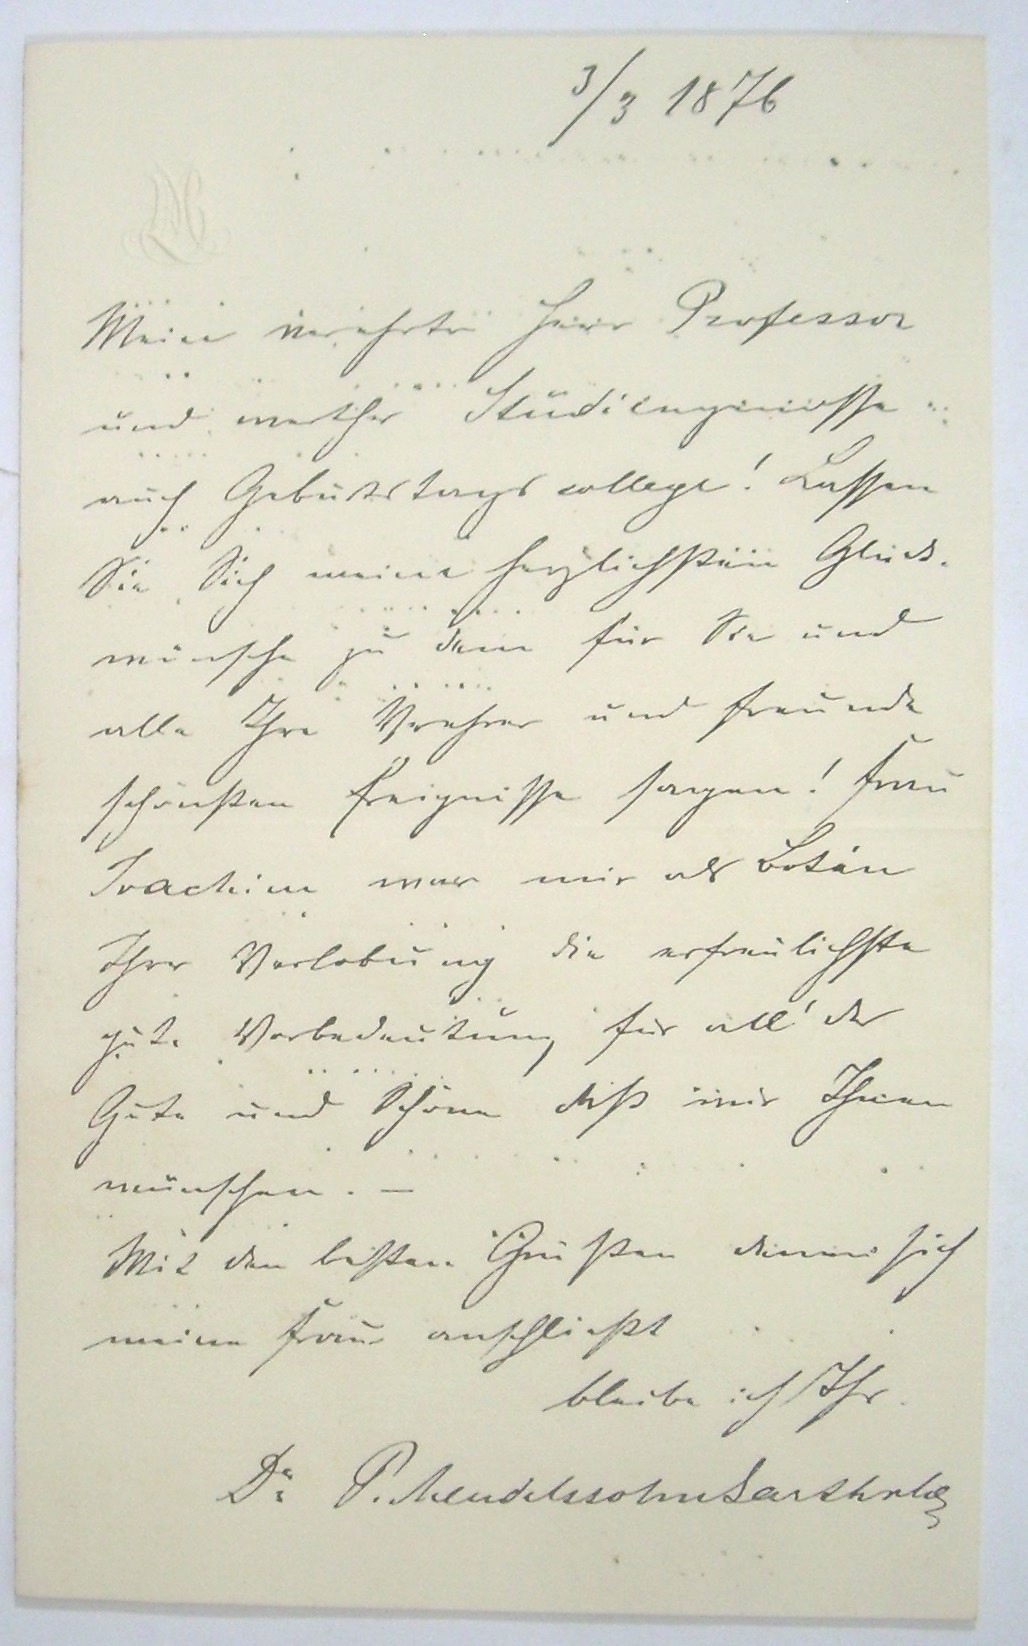 3/3 1876
Mein verehrter Herr Professor
und werther Studiengenosse
auch Geburtstagscollege! Lassen
Sie Sich meine herzlichsten Glück-
wünsche zu dem für Sie und
alle Ihre Verehrer und Freunde
schönsten Ereignisse sagen! Frau
Joachim war mir als Botin
Ihrer Verlobung die erfreulichste
gute Vorbedeutung für all' das
Gute und Schöne das wir Ihnen
wünschen. —
Mit den besten Grüßen denen sich
meine Frau anschließt
bleibe ich Ihr
Dr P. Mendelssohn Bartholdy